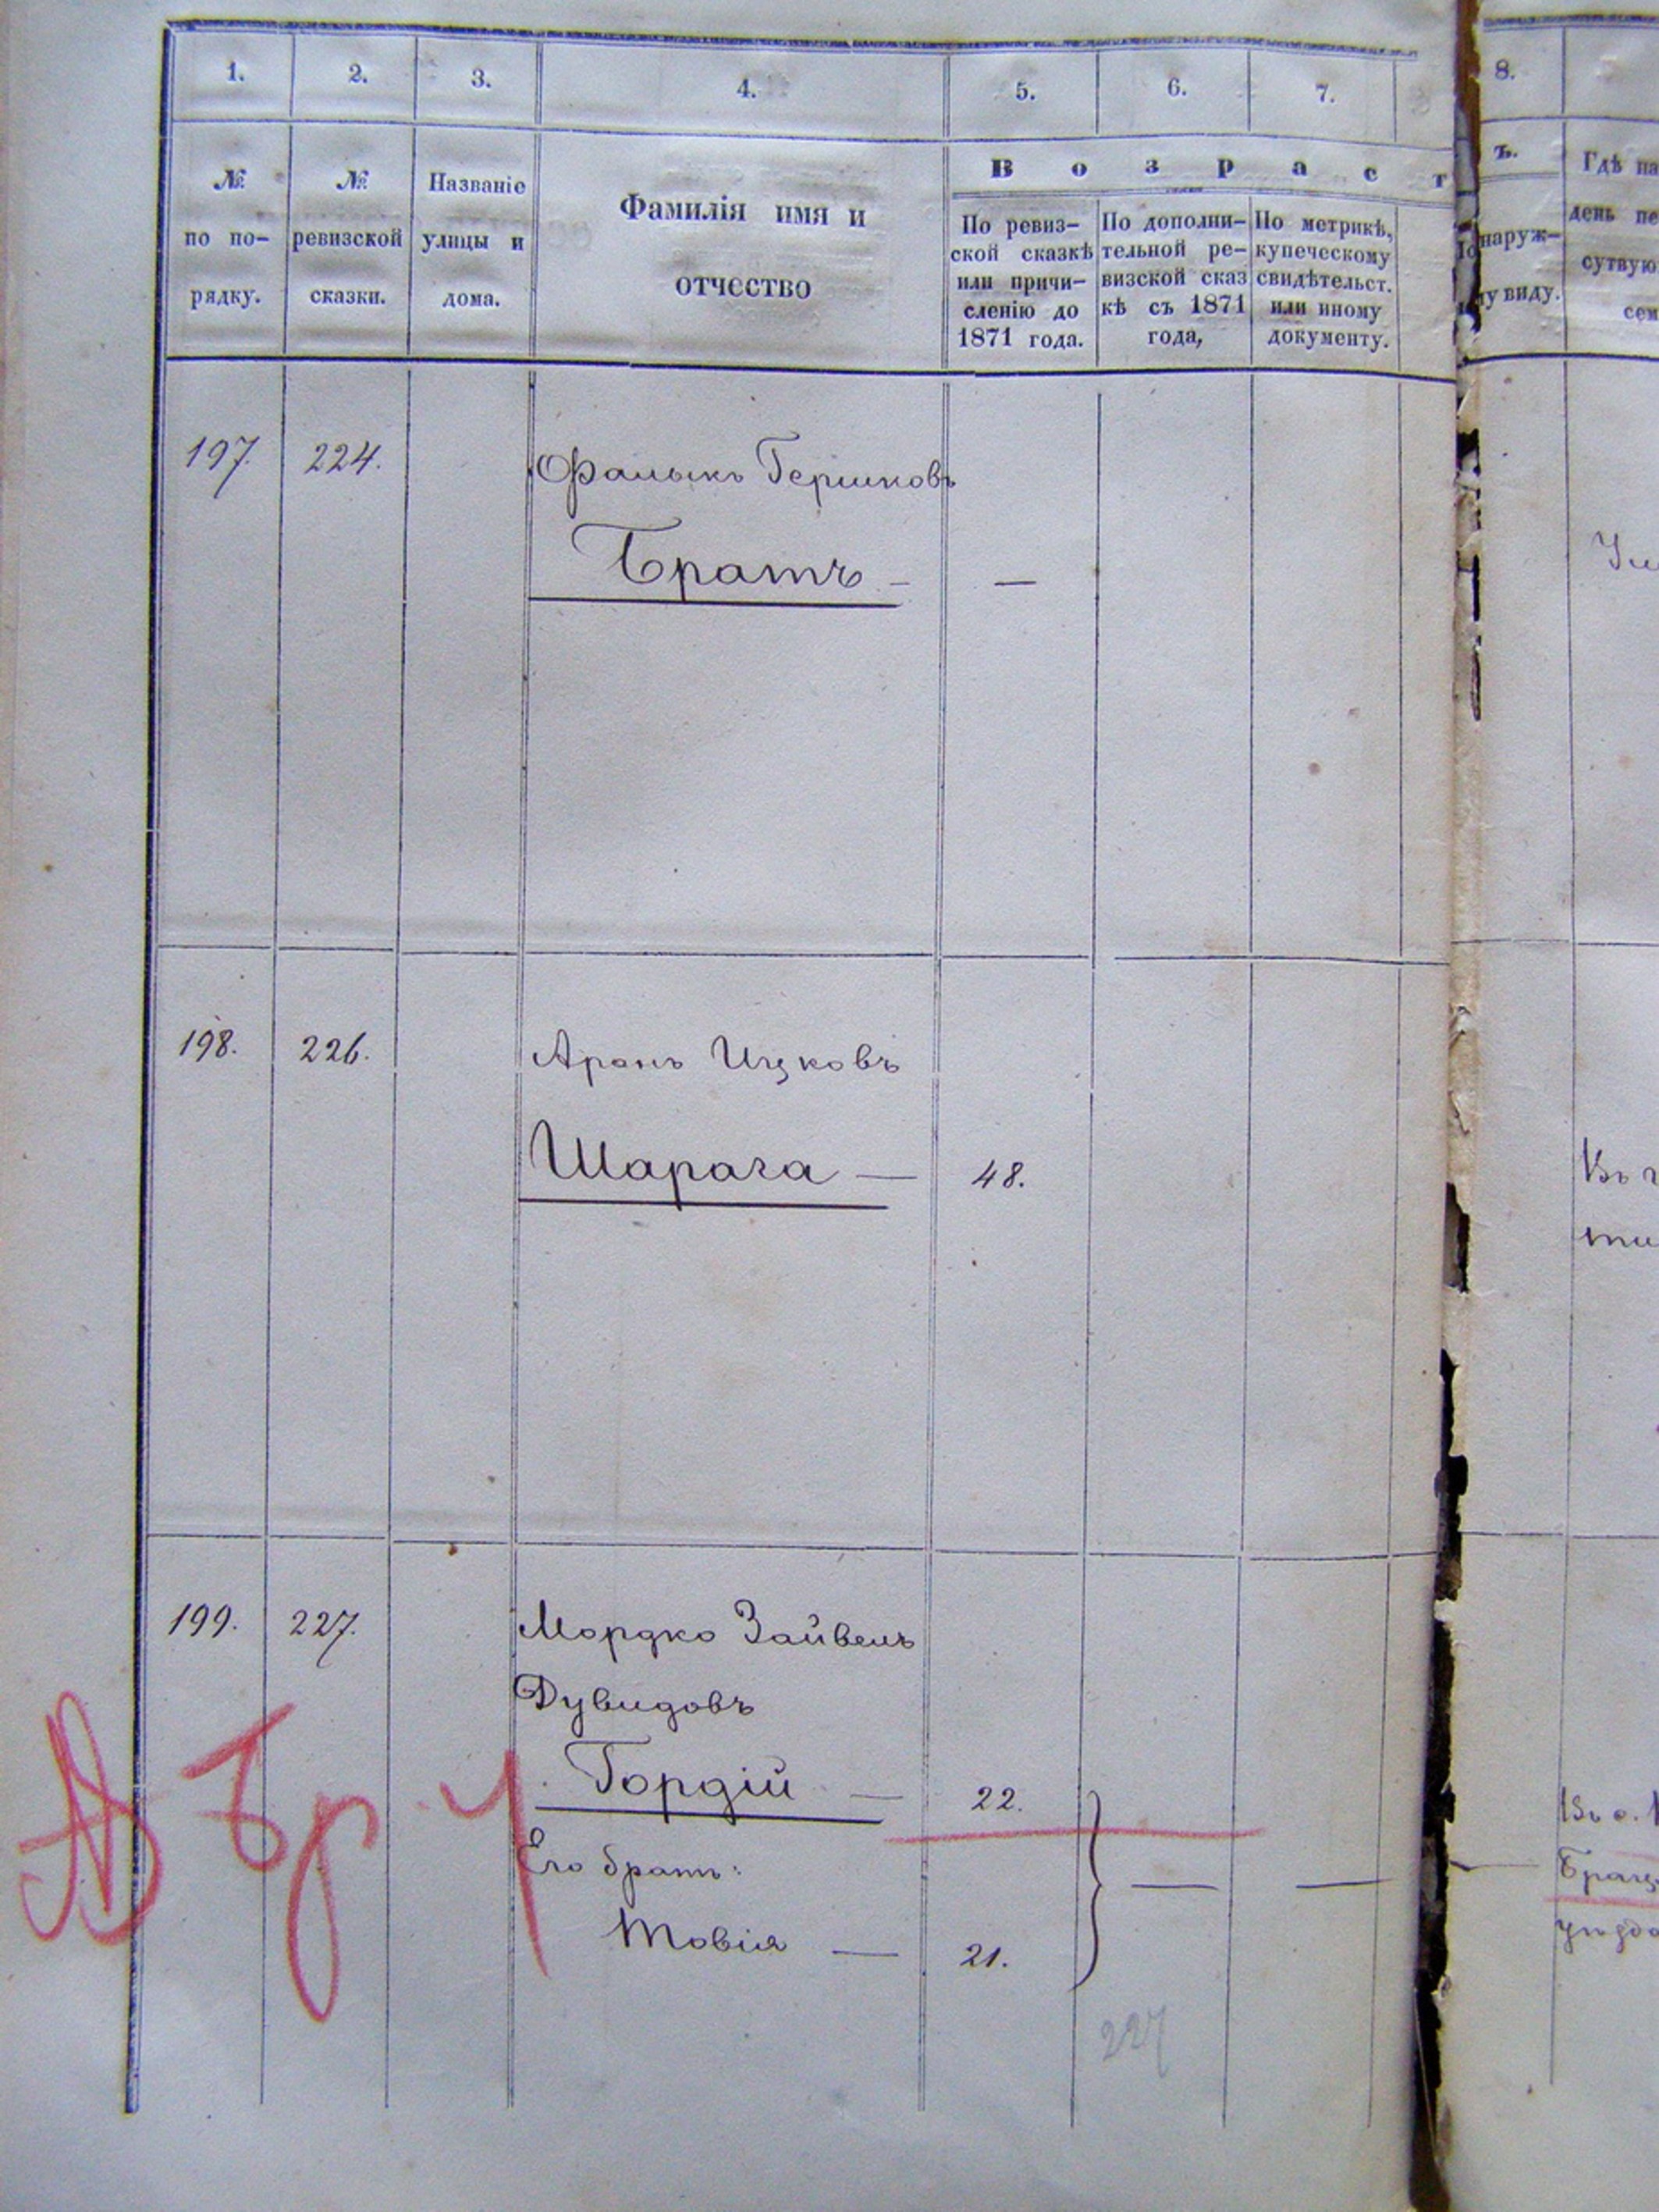 1. 2. 3. 4. 5. 6. 7. 8.
№ по по-рядку.
№ ревизской сказки.
Названіе улицы и дома.
Фамилія имя и отчество
Возраст
ъ.
По ревиз-
ской сказкѣ
или причи-
сленію до
1871 года.
По дополни-
тельной ре-
визской сказ
кѣ съ 1871
года,
По метрикѣ,
купеческому
свидѣтельст.
или иному
документу.
наруж-
у виду.
Гдѣ на
день пе
сутвую
сем
197. 224. Фалыкъ Гершковъ
Братъ — —
198. 226. Аронъ Ицковъ
Шарага — 48.
Въ
199. 227. Мордко Зайвель
Дувидовъ
Гордій — 22.
Его братъ:
Товія — 21.
Бр.
227